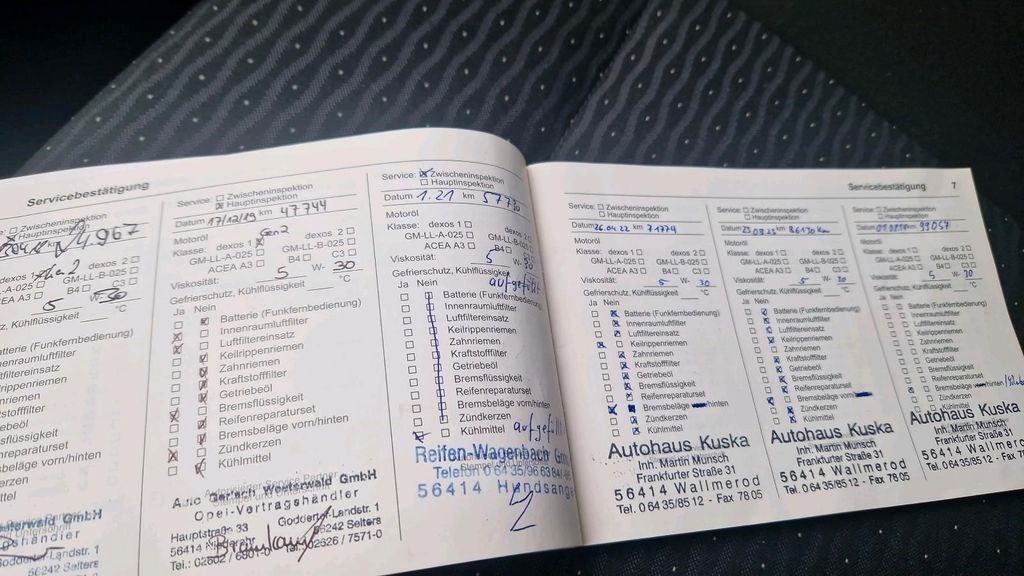 Servicebestätigung
Zwischeninspektion
Hauptinspektion
4.967
dexos 1 dexos 2
GM-LL-B-025
B4 C3
5 W- 30
Gefrierschutz, Kühlflüssigkeit °C
Batterie (Funkfernbedienung)
Innenraumluftfilter
Luftfiltereinsatz
Keilrippenriemen
Zahnriemen
Kraftstofffilter
Getriebeöl
Bremsflüssigkeit
Reifenreparaturset
Bremsbeläge vorn/hinten
Westerwald GmbH
Landstr. 1
56242 Selters
Service: Zwischeninspektion
Hauptinspektion
Datum 17/12/19 km 47744
Motoröl Gen2
Klasse: dexos 1 dexos 2
GM-LL-A-025 GM-LL-B-025
ACEA A3 B4 C3
Viskosität: 5 W- 30
Gefrierschutz, Kühlflüssigkeit °C
Ja Nein
Batterie (Funkfernbedienung)
Innenraumluftfilter
Luftfiltereinsatz
Keilrippenriemen
Zahnriemen
Kraftstofffilter
Getriebeöl
Bremsflüssigkeit
Reifenreparaturset
Bremsbeläge vorn/hinten
Zündkerzen
Kühlmittel
Auto Gerlach Westerwald GmbH
Opel-Vertragshändler
Hauptstraße 33 Godderter Landstr. 1
56414 56242 Selters
Tel.: 02602 / Tel.: 02626 / 7571-0
Service: Zwischeninspektion
Hauptinspektion
Datum 1.21 km 57730
Motoröl
Klasse: dexos 1 dexos 2
GM-LL-A-025 GM-LL-B-025
ACEA A3 B4 C3
Viskosität: 5 W- 30
Gefrierschutz, Kühlflüssigkeit
Ja Nein aufgefüllt
Batterie (Funkfernbedienung)
Innenraumluftfilter
Luftfiltereinsatz
Keilrippenriemen
Zahnriemen
Kraftstofffilter
Getriebeöl
Bremsflüssigkeit
Reifenreparaturset
Bremsbeläge vorn/hinten
Zündkerzen
Kühlmittel aufgefüllt
Reifen-Wagenbach GmbH
Telefon 06435
56414 Hundsangen
Servicebestätigung 7
Service: Zwischeninspektion
Hauptinspektion
Datum 26.04.22 km 71774
Motoröl
Klasse: dexos 1 dexos 2
GM-LL-A-025 GM-LL-B-025
ACEA A3 B4 C3
Viskosität: 5 W- 30
Gefrierschutz, Kühlflüssigkeit °C
Ja Nein
Batterie (Funkfernbedienung)
Innenraumluftfilter
Luftfiltereinsatz
Keilrippenriemen
Zahnriemen
Kraftstofffilter
Getriebeöl
Bremsflüssigkeit
Reifenreparaturset
Bremsbeläge vorn/hinten
Zündkerzen
Kühlmittel
Autohaus Kuska
Inh. Martin Munsch
Frankfurter Straße 31
56414 Wallmerod
Tel. 0 64 35/85 12 - Fax 78 05
Service: Zwischeninspektion
Hauptinspektion
Datum 23.08.23 km 86130 Km
Motoröl
Klasse: dexos 1 dexos 2
GM-LL-A-025 GM-LL-B-025
ACEA A3 B4 C3
Viskosität: 5 W- 30
Gefrierschutz, Kühlflüssigkeit °C
Ja Nein
Batterie (Funkfernbedienung)
Innenraumluftfilter
Luftfiltereinsatz
Keilrippenriemen
Zahnriemen
Kraftstofffilter
Getriebeöl
Bremsflüssigkeit
Reifenreparaturset
Bremsbeläge vorn/hinten
Zündkerzen
Kühlmittel
Autohaus Kuska
Inh. Martin Munsch
Frankfurter Straße 31
56414 Wallmerod
Tel. 0 64 35/85 12 - Fax 78 05
Service: Zwischeninspektion
Hauptinspektion
Datum km 99057
Motoröl
Klasse: dexos 1 dexos 2
GM-LL-A-025 GM-LL-B-025
ACEA A3 B4 C3
Viskosität: 5 W- 30
Gefrierschutz, Kühlflüssigkeit °C
Ja Nein
Batterie (Funkfernbedienung)
Innenraumluftfilter
Luftfiltereinsatz
Keilrippenriemen
Zahnriemen
Kraftstofffilter
Getriebeöl
Bremsflüssigkeit
Reifenreparaturset
Bremsbeläge vorn/hinten
Zündkerzen
Kühlmittel
Autohaus Kuska
Inh. Martin Munsch
Frankfurter Straße 31
56414 Wallmerod
Tel. 0 64 35/85 12 - Fax 78 05